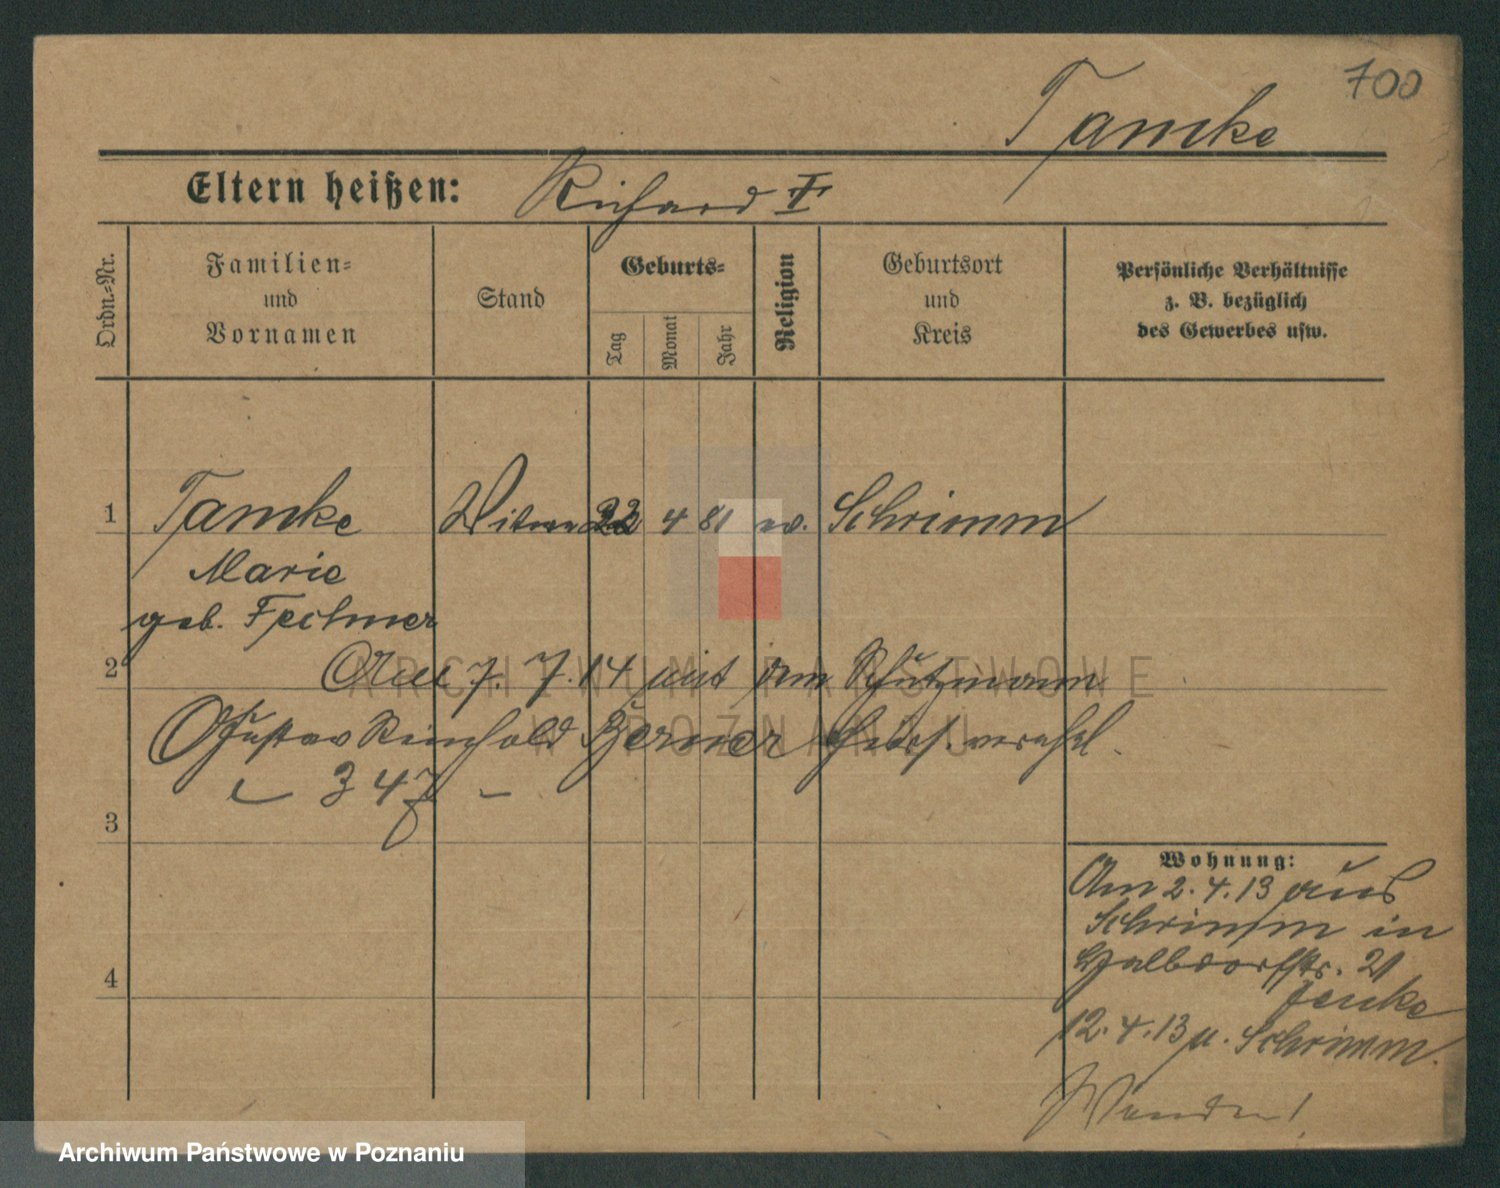 700
Tamke
Eltern heißen: Richard I
Ordn.=Nr.
Familien=
und
Vornamen
Stand
Geburts=
Tag
Monat
Jahr
Religion
Geburtsort
und
Kreis
Persönliche Verhältnisse
z. B. bezüglich
des Gewerbes usw.
1 Tamke Witwe 22 4 81 ev. Schrimm
Marie
geb. Fechner
2 7. 7. 14 mit dem Schutzmann
Gustav Reinhold Berner verehel.
347 –
3
Wohnung:
Am 2. 4. 13 aus
Schrimm in
Halbdorfstr. 21
Jenke
12. 4. 13 n. Schrimm.
4
Wenden!
ARCHIWUM PAŃSTWOWE
W POZNANIU
Archiwum Państwowe w Poznaniu